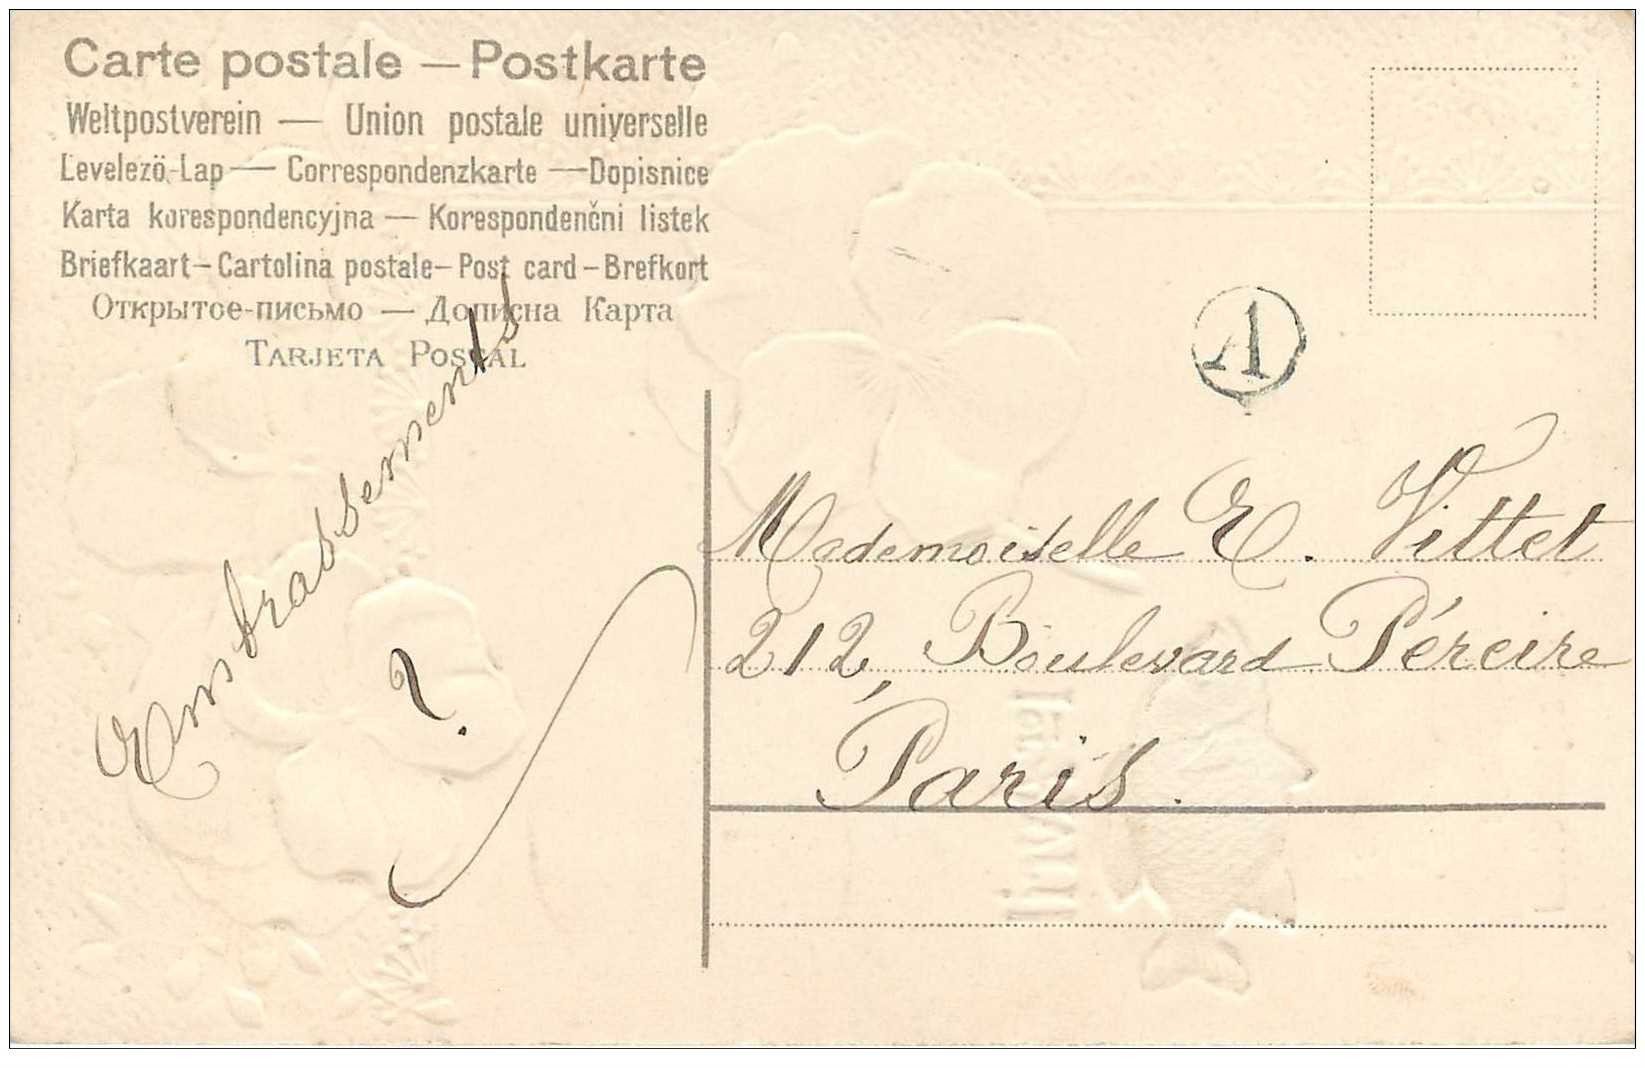 Carte postale — Postkarte
Weltpostverein — Union postale universelle
Levelező-Lap — Correspondenzkarte — Dopisnice
Karta korespondencyjna — Korespondenčni listek
Briefkaart — Cartolina postale — Post card — Brefkort
Открытое-письмо — Дописна Карта
TARJETA POSTAL
A
Embrassements
?
Mademoiselle E. Vittet
212, Boulevard Péreire
Paris.